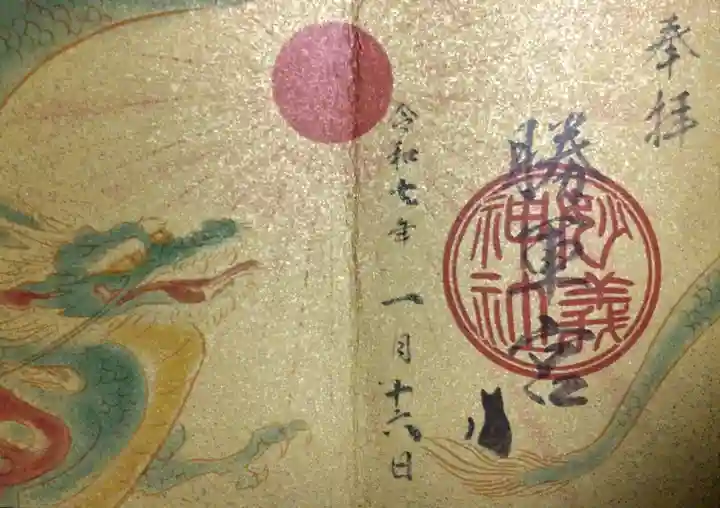 奉拝
勝軍宮
妙義
神社
令和七年 一月十六日